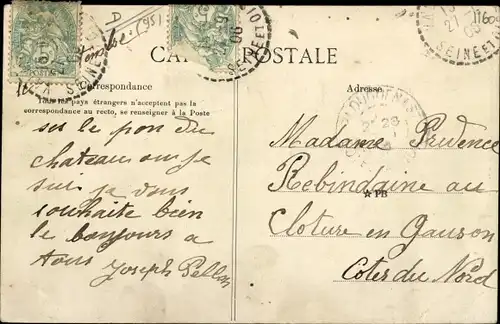 A
(951
1160
CARTE POSTALE
Correspondance
Tous les pays étrangers n'acceptent pas la
correspondance au recto, se renseigner à la Poste
ses le pon du
chateau ou je
sui je vous
souhaite bien
le bonjours a
tous Joseph Pellan
Adresse
Madame Prudence
Rebindaine au
★PB
Cloture en Gauson
Cotes du Nord
27
05
SEINE ET